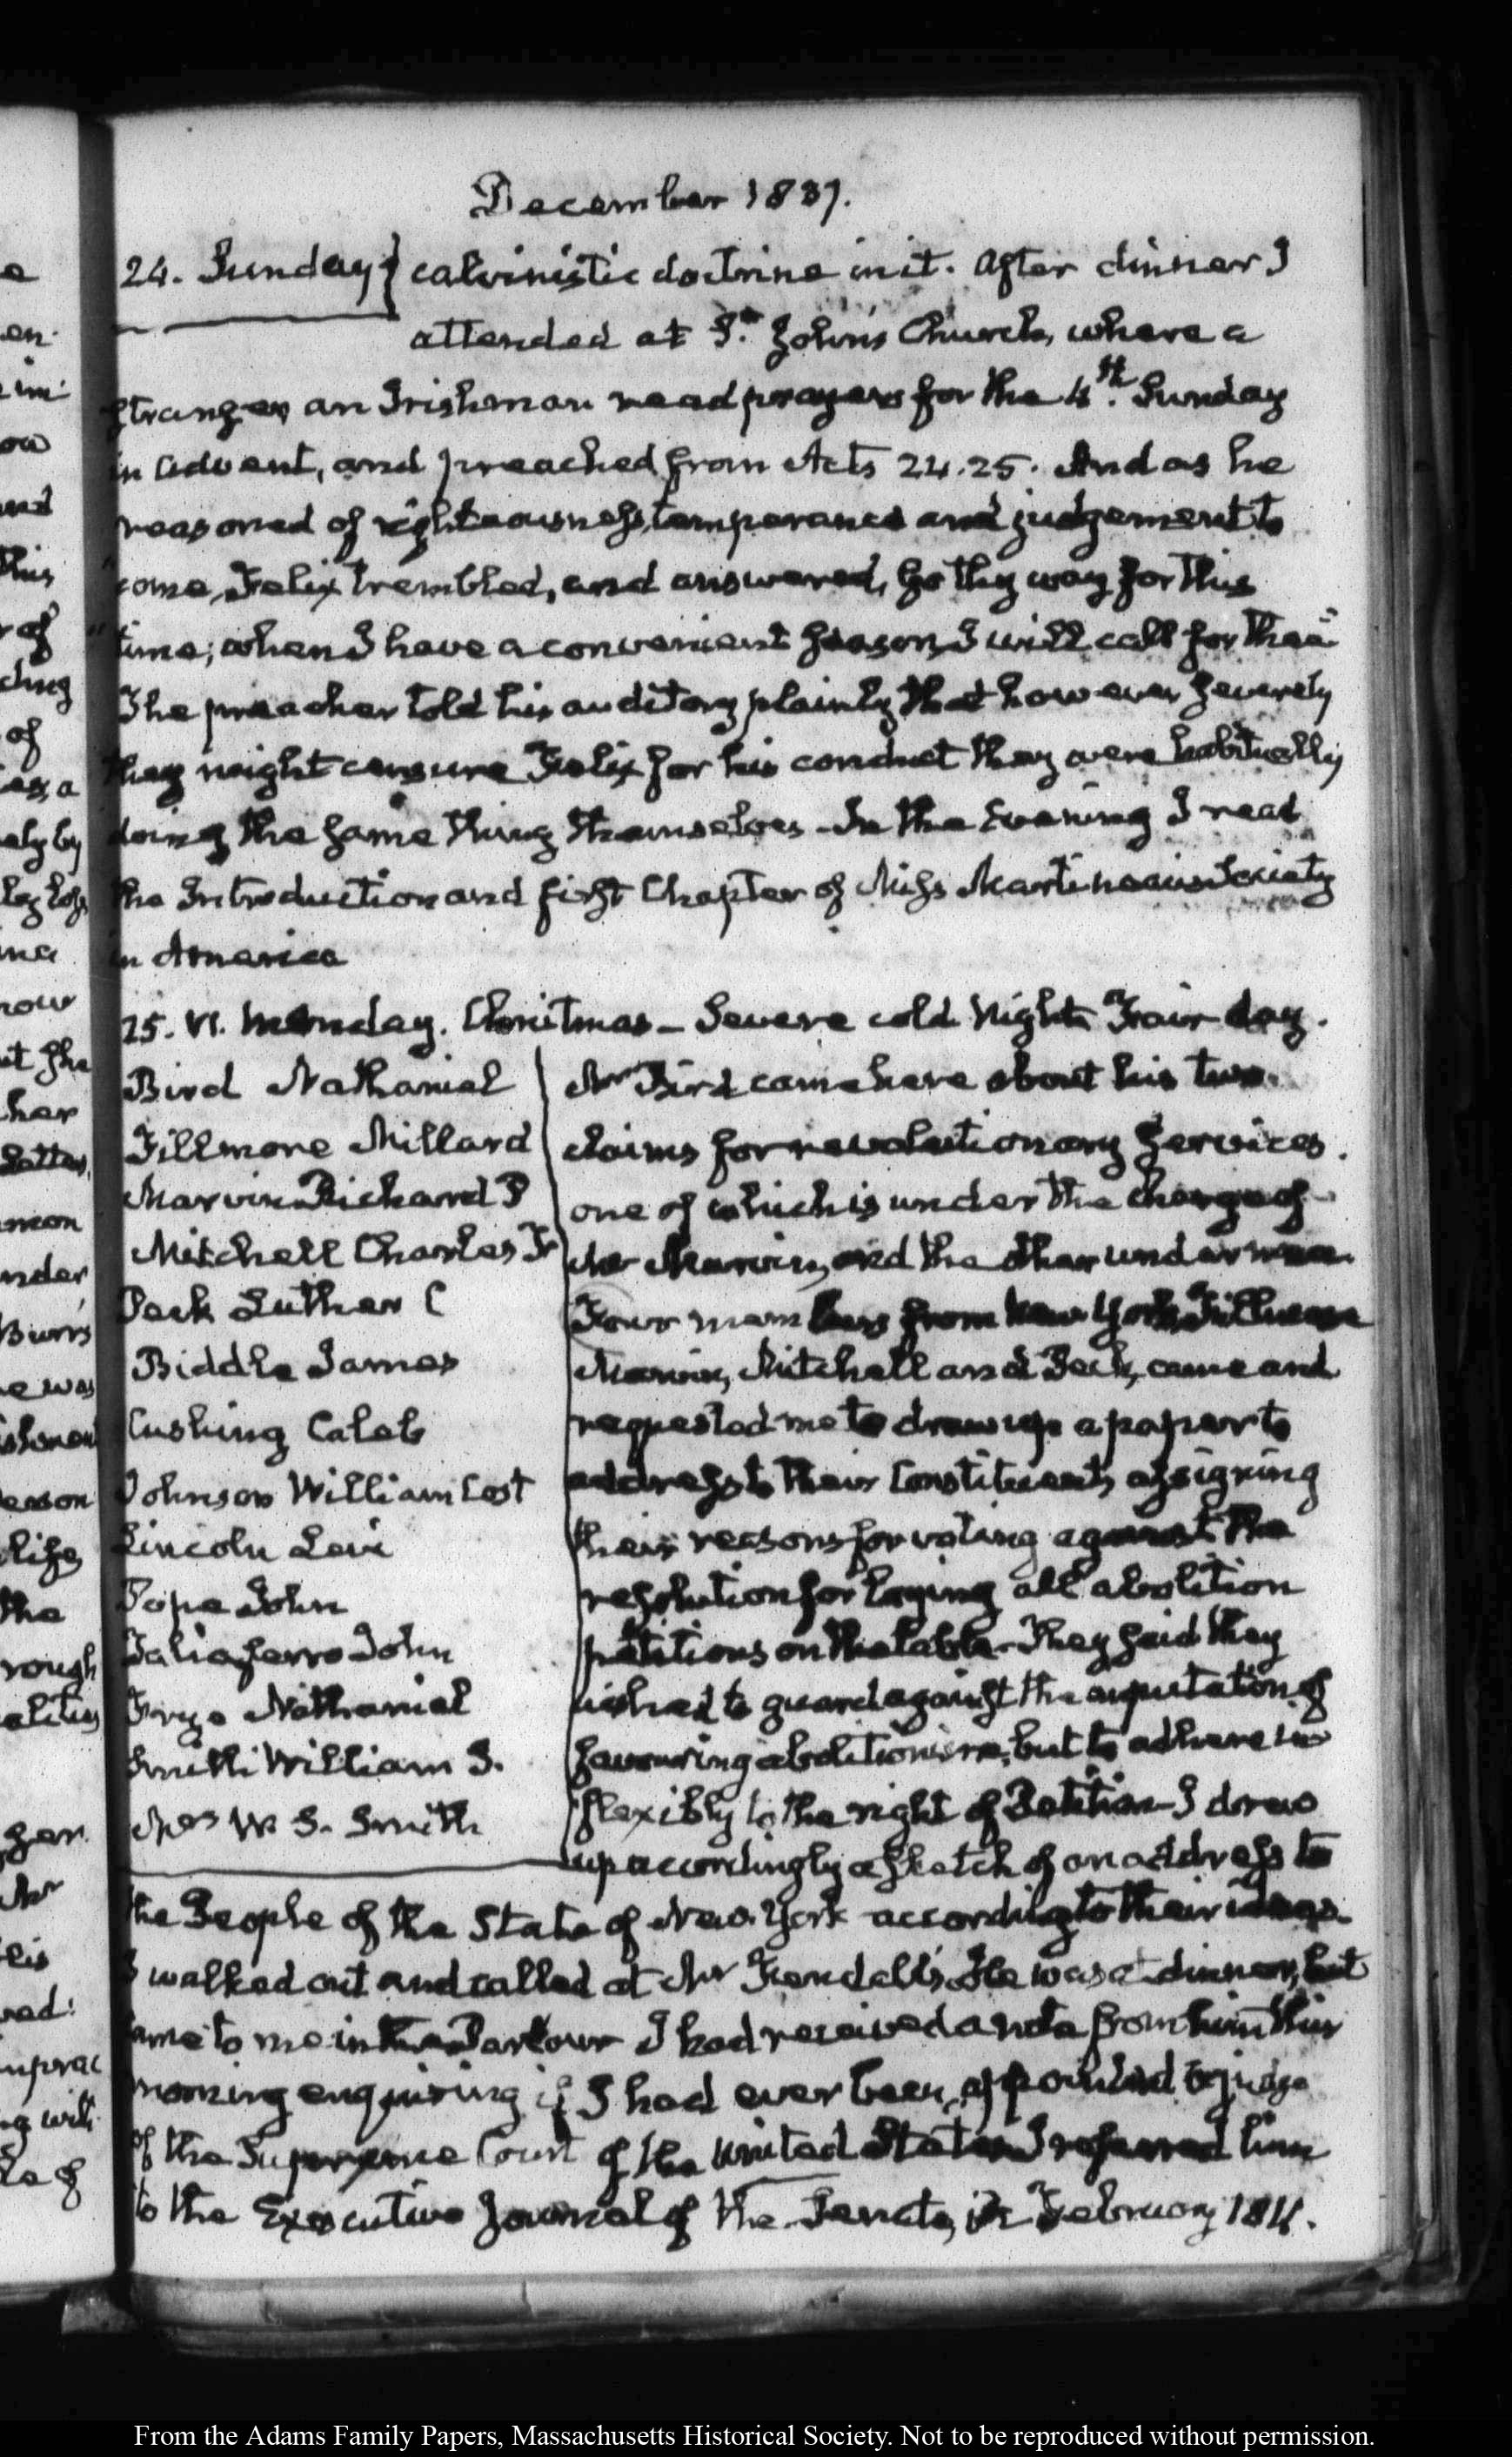 December 1837.
24. Sunday} calvinistic doctrine in it. After dinner I
attended at St. John's Church, where a
stranger an Irishman read prayers for the 4th. Sunday
in Advent, and preached from Acts 24.25. And as he
"reasoned of righteousness, temperance and judgement to
"come, Felix trembled, and answered, Go thy way for this
"time; when I have a convenient season, I will call for thee"
The preacher told his auditory plainly that however severely
they might censure Felix for his conduct they were habitually
doing the same thing themselves - In the Evening I read
the Introduction and first Chapter of Miss Martineau's Society
in America
25. VI. Monday. Christmas - Severe cold Night. Fair day.
Bird Nathaniel
Fillmore Millard
Marvin Richard P
Mitchell Charles F
Peck Luther C
Biddle James
Cushing Caleb
Johnson William Cost
Lincoln Levi
Pope John
Taliaferro John
Frye Nathaniel
Smith William S.
Mrs W. S. Smith
Mr Bird came here about his two
claims for revolutionary services.
one of which is under the charge of
Mr Marvin, and the other under me.
Four members from New York, Fillmore
Marvin, Mitchell and Peck, came and
requested me to draw up a paper to
address to their Constituents assigning
their reasons for voting against the
resolution for laying all abolition
petitions on the table - They said they
wished to guard against the imputation of
favouring abolitionism, but to adhere in
flexibly to the right of Petition - I drew
up accordingly a sketch of an address to
the People of the State of New York according to their ideas.
I walked out and called at Mr Fendall's. He was at dinner, but
came to me in the Parlour I had received a note from him this
morning enquiring if I had ever been appointed a judge
of the Supreme Court of the United States. I referred him
to the Executive Journal of the Senate, in February 1811.
e
en.
im
ow
and
this
r of
ching
of
as, a
ely by
ma
now
at she
her
Letter,
mon
nder
Burr's
e was
erson
life
the
rough
alities
ger
Mr
his
uprac
g with
le of
From the Adams Family Papers, Massachusetts Historical Society. Not to be reproduced without permission.